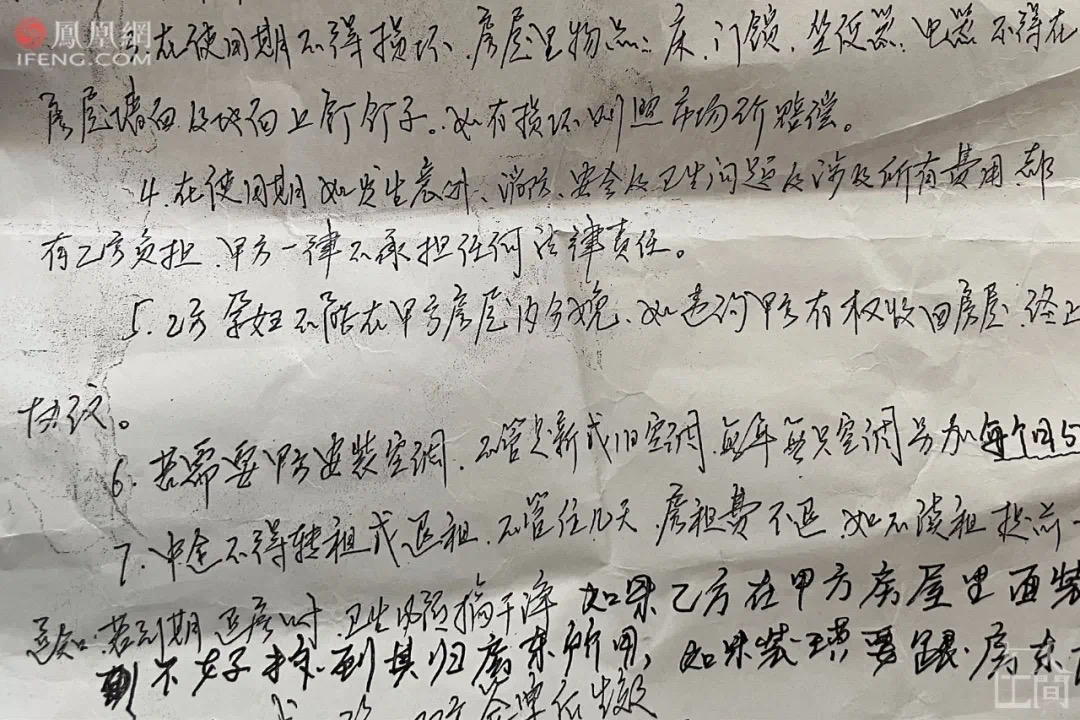 鳳凰網
IFENG.COM
3.在使用期不得损坏、房屋里物品：床、门锁、坐便器、电器不得在
房屋墙面及地面上钉钉子。如有损坏则照市场价赔偿。
4.在使用期如发生意外、消防、安全及卫生问题及涉及所有费用都
有乙方负担、甲方一律不承担任何法律责任。
5.乙方孕妇不能在甲方房屋内分娩、如违约甲方有权收回房屋、终止
协议。
6.若需要甲方安装空调、不管是新或旧空调、每年每只空调另加每个月5
7.中途不得转租或退租、不管住几天、房租费不退、如不续租提前一
通知.若到期退房时、卫生必须搞干净 如果乙方在甲方房屋里面装
不好 到其归房东所用，如果装璜要跟房东
工间